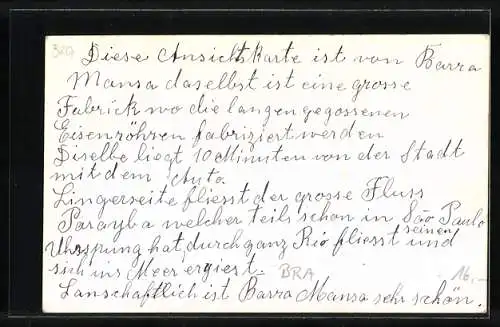 Diese Ansichtskarte ist von Barra
Mansa daselbst ist eine grosse
Fabrick wo die langen gegossenen
Eisenröhren fabriziert werden
Diselbe liegt 10 Minuten von der Stadt
mit dem Auto.
Lingerseite fliesst der grosse Fluss
Parayba welcher teils schon in São Paulo
seinen
Uhrspung hat, durch ganz Rio fliesst und
sich ins Meer ergiest.
BRA
16,-
Lanschaftlich ist Barra Mansa sehr schön.